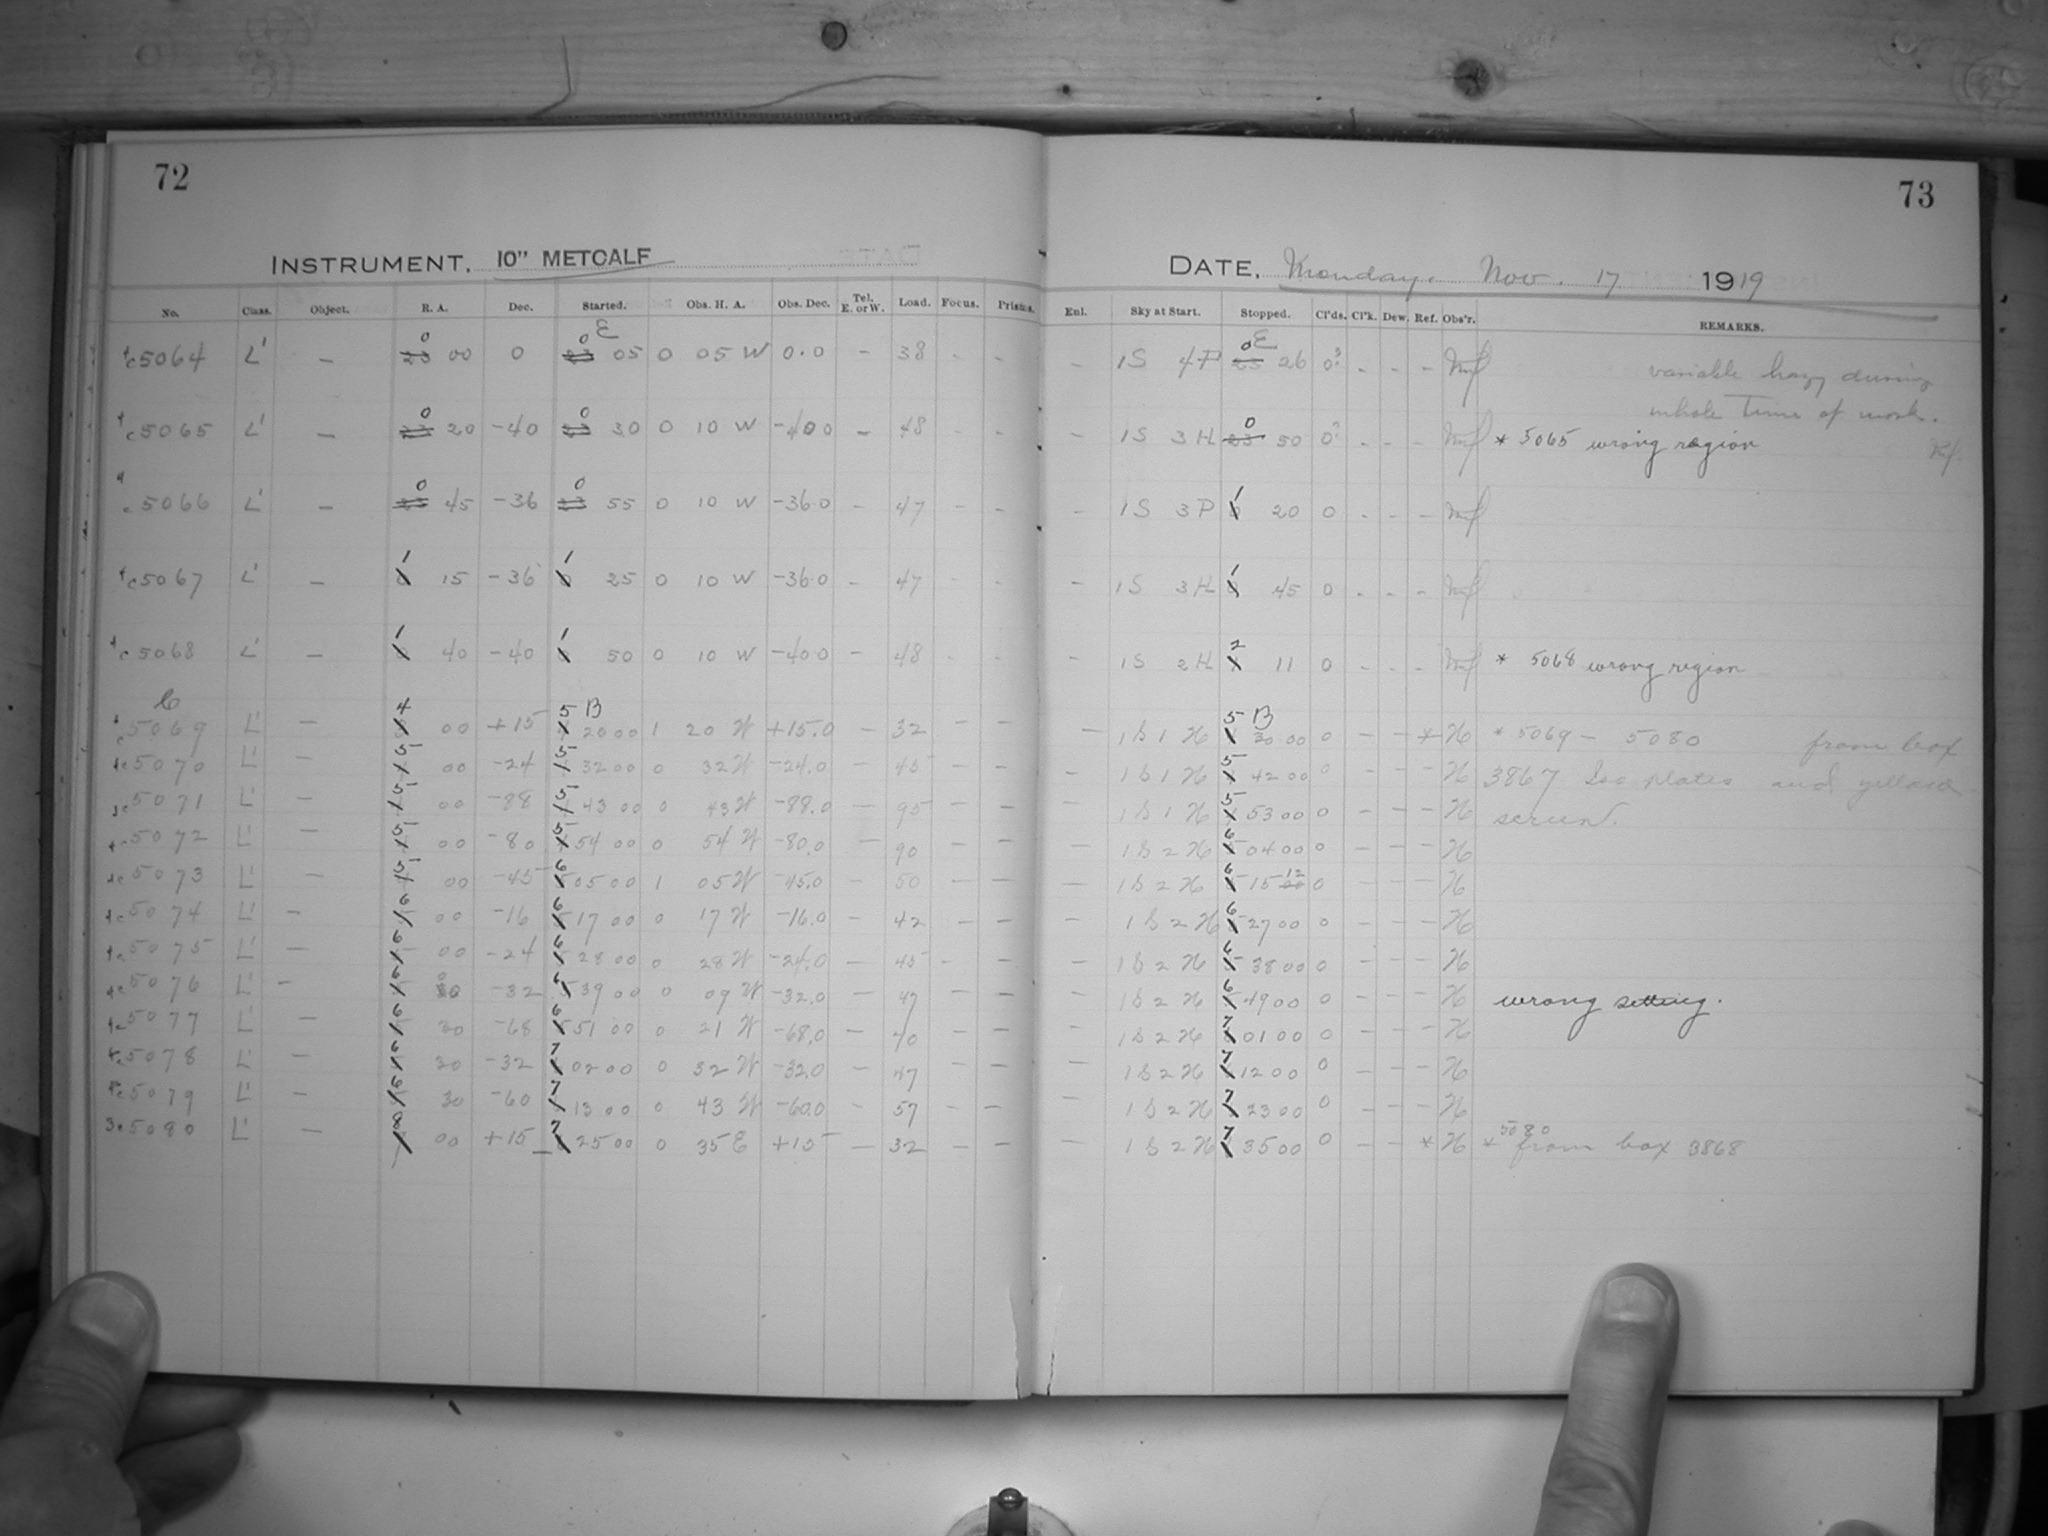 72
73
INSTRUMENT, 10" METCALF
DATE, Monday, Nov. 17 1919
No. Class. Object. R. A. Dec. Started. Obs. H. A. Obs. Dec. Tel. E. or W. Load. Focus. Prisms. Enl. Sky at Start. Stopped. Cl'ds. Cl'k. Dew. Ref. Obs'r. REMARKS.
c5064 L' – 0 23 00 0 0 E 23 05 0 05 W 0.0 – 38 - - – 1S 4P 0 E 23 26 0 - - - variable hazy during
whole time of work.
c5065 L' – 0 23 20 -40 0 23 30 0 10 W -40.0 – 48 - - – 1S 3H 0 23 50 0 - - - * 5065 wrong region
c5066 L' – 0 23 45 -36 0 23 55 0 10 W -36.0 – 47 - - – 1S 3P 1 0 20 0 - - -
c5067 L' – 1 0 15 -36 1 0 25 0 10 W -36.0 – 47 - - – 1S 3H 1 0 45 0 - - -
c5068 L' – 1 0 40 -40 1 0 50 0 10 W -40.0 – 48 - - – 1S 2H 2 1 11 0 - - - * 5068 wrong region
c5069 L' – 4 00 +15 5 B 20 00 1 20 W +15.0 – 32 – – – 1S 1H 5 B 30 00 0 – – * H * 5069 – 5080 from box
c5070 L' – 5 00 -24 5 32 00 0 32 W -24.0 – 45 – – – 1S 1H 5 42 00 0 – – – H 3867 Iso plates and yellow
c5071 L' – 5 00 -88 5 43 00 0 43 W -88.0 – 95 – – – 1S 1H 5 53 00 0 – – – H screen.
c5072 L' – 5 00 -80 5 54 00 0 54 W -80.0 – 90 – – – 1S 2H 6 04 00 0 – – – H
c5073 L' – 5 00 -45 6 05 00 1 05 W -45.0 – 50 – – – 1S 2H 6 15 12 00 0 – – – H
c5074 L' – 6 00 -16 6 17 00 0 17 W -16.0 – 42 – – – 1S 2H 6 27 00 0 – – – H
c5075 L' – 6 00 -24 6 28 00 0 28 W -24.0 – 45 – – – 1S 2H 6 38 00 0 – – – H
c5076 L' – 6 30 -32 6 39 00 0 09 W -32.0 – 47 – – – 1S 2H 6 49 00 0 – – – H wrong setting.
c5077 L' – 6 30 -68 6 51 00 0 21 W -68.0 – 70 – – – 1S 2H 7 01 00 0 – – – H
c5078 L' – 6 30 -32 7 02 00 0 32 W -32.0 – 47 – – – 1S 2H 7 12 00 0 – – – H
c5079 L' – 6 30 -60 7 13 00 0 43 W -60.0 – 57 – – – 1S 2H 7 23 00 0 – – – H
c5080 L' – 8 00 +15 7 25 00 0 35 E +15 – 32 – – – 1S 2H 7 35 00 0 – – * H * 5080 from box 3868